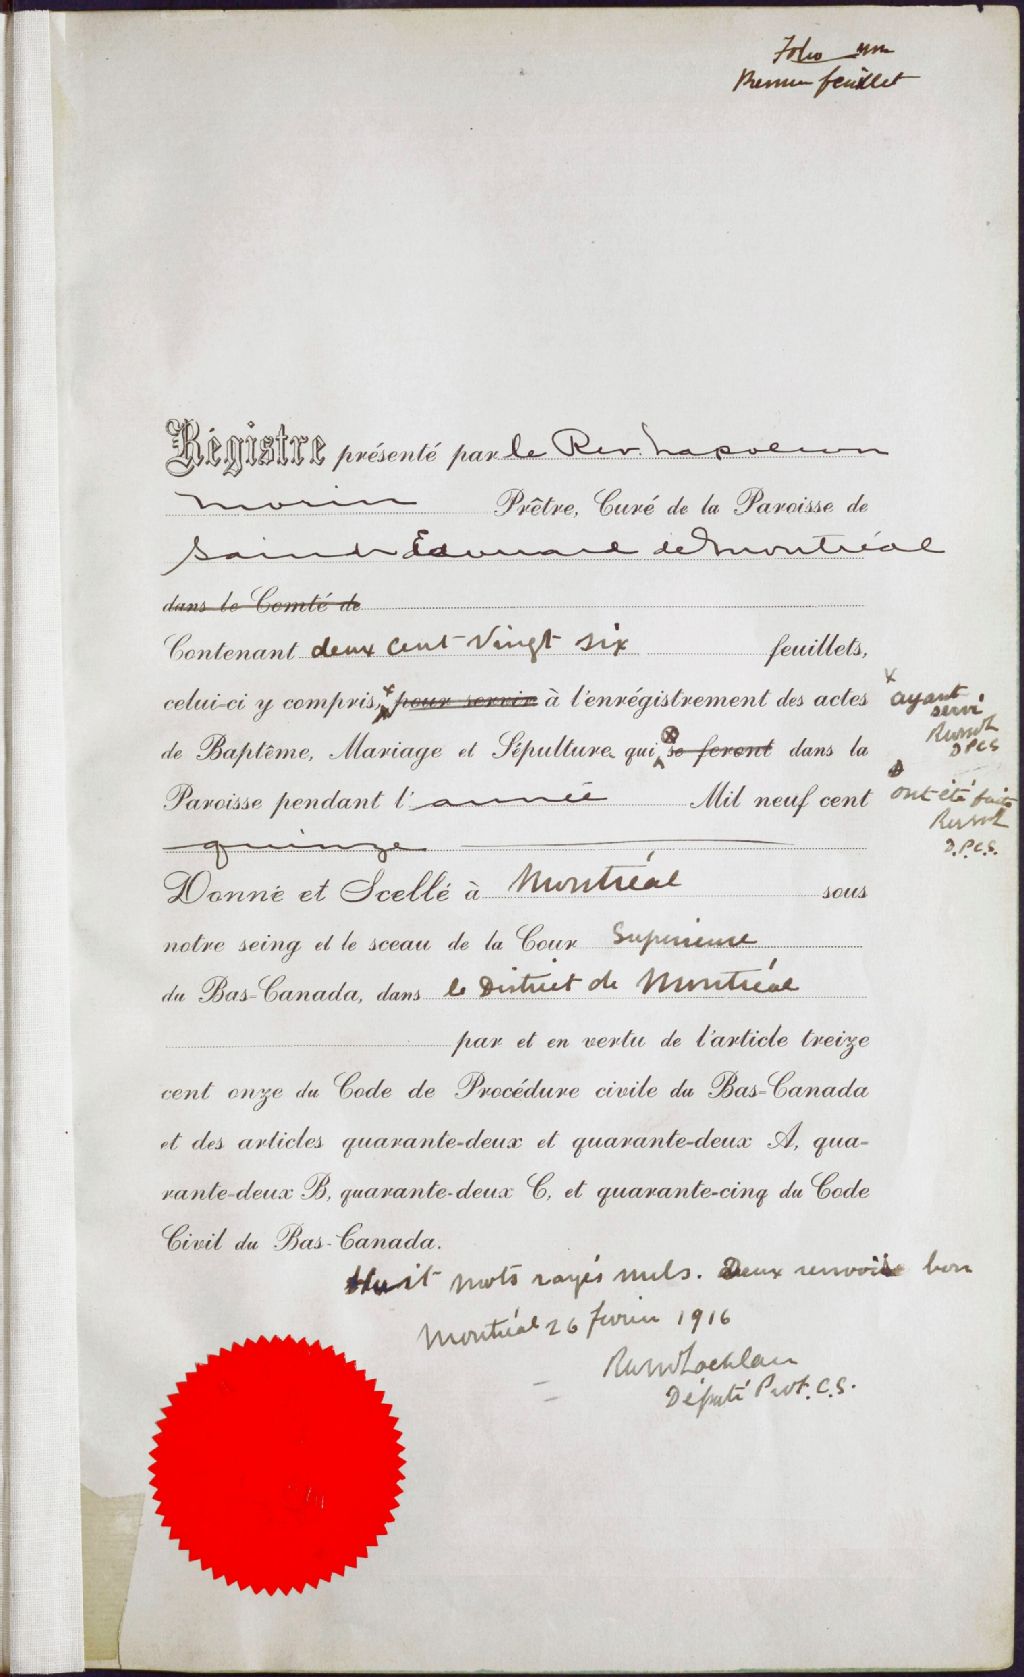 Folio un
Premier feuillet
Régistre présenté par le Rev. Napoleon
Morin Prêtre, Curé de la Paroisse de
Saint Edouard de Montréal
dans le Comté de
Contenant deux cent vingt six feuillets,
celui-ci y compris, x pour servir à l'enrégistrement des actes
x ayant
servi
D P C S
de Baptême, Mariage et Sépulture qui ⊗ se feront dans la
Paroisse pendant l'année Mil neuf cent
ont été faits
D.P.C.S.
quinze
Donné et Scellé à Montréal sous
notre seing et le sceau de la Cour Superieure
du Bas-Canada, dans le District de Montréal
par et en vertu de l'article treize
cent onze du Code de Procédure civile du Bas-Canada
et des articles quarante-deux et quarante-deux A, qua-
rante-deux B, quarante-deux C, et quarante-cinq du Code
Civil du Bas-Canada.
Huit mots rayés nuls. Deux renvois bon
Montréal 26 fevrier 1916
Député Prot. C.S.